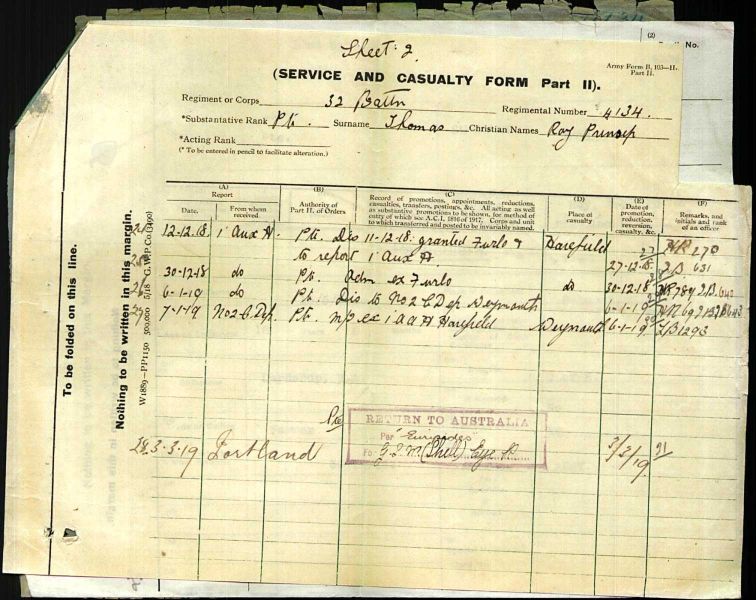 Sheet 2
(2)
No.
Army Form B. 103—II.
Part II.
(SERVICE AND CASUALTY FORM Part II).
Regiment or Corps 32 Battn Regimental Number 4134.
*Substantive Rank Pte. Surname Thomas Christian Names Roy Prinsep
*Acting Rank
(* To be entered in pencil to facilitate alteration.)
To be folded on this line.
Nothing to be written in this margin.
W1889—PP1150 500,000 5/18 G. W.P Co.(3490)
(A)
Report
Date. From whom received.
(B)
Authority of Part II. of Orders
(C)
Record of promotions, appointments, reductions, casualties, transfers, postings, &c. All acting as well as substantive promotions to be shown, for method of entry of which see A.C.I. 1816 of 1917. Corps and unit to which transferred and posted to be invariably named.
(D)
Place of casualty
(E)
Date of promotion, reduction, casualty, &c.
(F)
Remarks, and initials and rank of an officer
12-12-18. 1 Aux H Pte. Dis 11-12-18. granted Furlo & Harefield 270
to report 1 Aux H. 27-12-18 631
30-12-18 do Pte. Adm ex Furlo do 30-12-18 789
6-1-19 do Pte. Dis to No 2 C Dep Weymouth 6-1-19 692
7-1-19 No 2 C. Dep. Pte. M/I ex 1 A A H Harefield Weymouth 6-1-19 1293
Pte RETURN TO AUSTRALIA
Per Euripides
3-3-19 Portland For G.S.W. (Shell) Eye R. 3/3/19 91